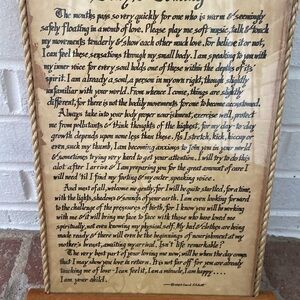 The months pass so very quickly for one who is warm & seemingly
safely floating in a womb of love. Please play me soft music, talk & touch
my movements tenderly & show each other much love, for believe it or not,
I can feel these sensations through this small body. I am speaking to you with
my inner voice for every soul holds one of these within the depths of its
spirit. I am already a soul, a person in my own right, though slightly
unfamiliar with your world. From whence I come, things are slightly
different, for there is not the bodily movements for one to become accustomed.
Always take into your body proper nourishment, exercise well, protect
me from pollutants & think thoughts of the highest, for my day to day
growth depends upon you less than these. As I stretch, kick, hiccup or
even suck my thumb, I am becoming anxious to join you in your world
& sometimes trying very hard to get your attention. I will try to do this
alot after I arrive & I am preparing you for the great amount of care I
will need 'til I find my footing & my outer speaking voice.
And most of all, welcome me gently, for I will be quite startled, for a time,
with the lights, shadows & sounds of your earth. I am even looking forward
to the challenge of the pressures of birth, for I know you will be working
with me & it will bring me face to face with those who have loved me
spiritually, not even knowing my physical self. My bed & clothes are being
made ready & there will even be the beginnings of nourishment at my
mother's breast, awaiting my arrival. Isn't life remarkable?
The very best part of your loving me now, will be when the day comes
that I may show you love in return. It's not far off for you are already
thinking me of love - I can feel it, I am a miracle, I am happy....
I am your child.